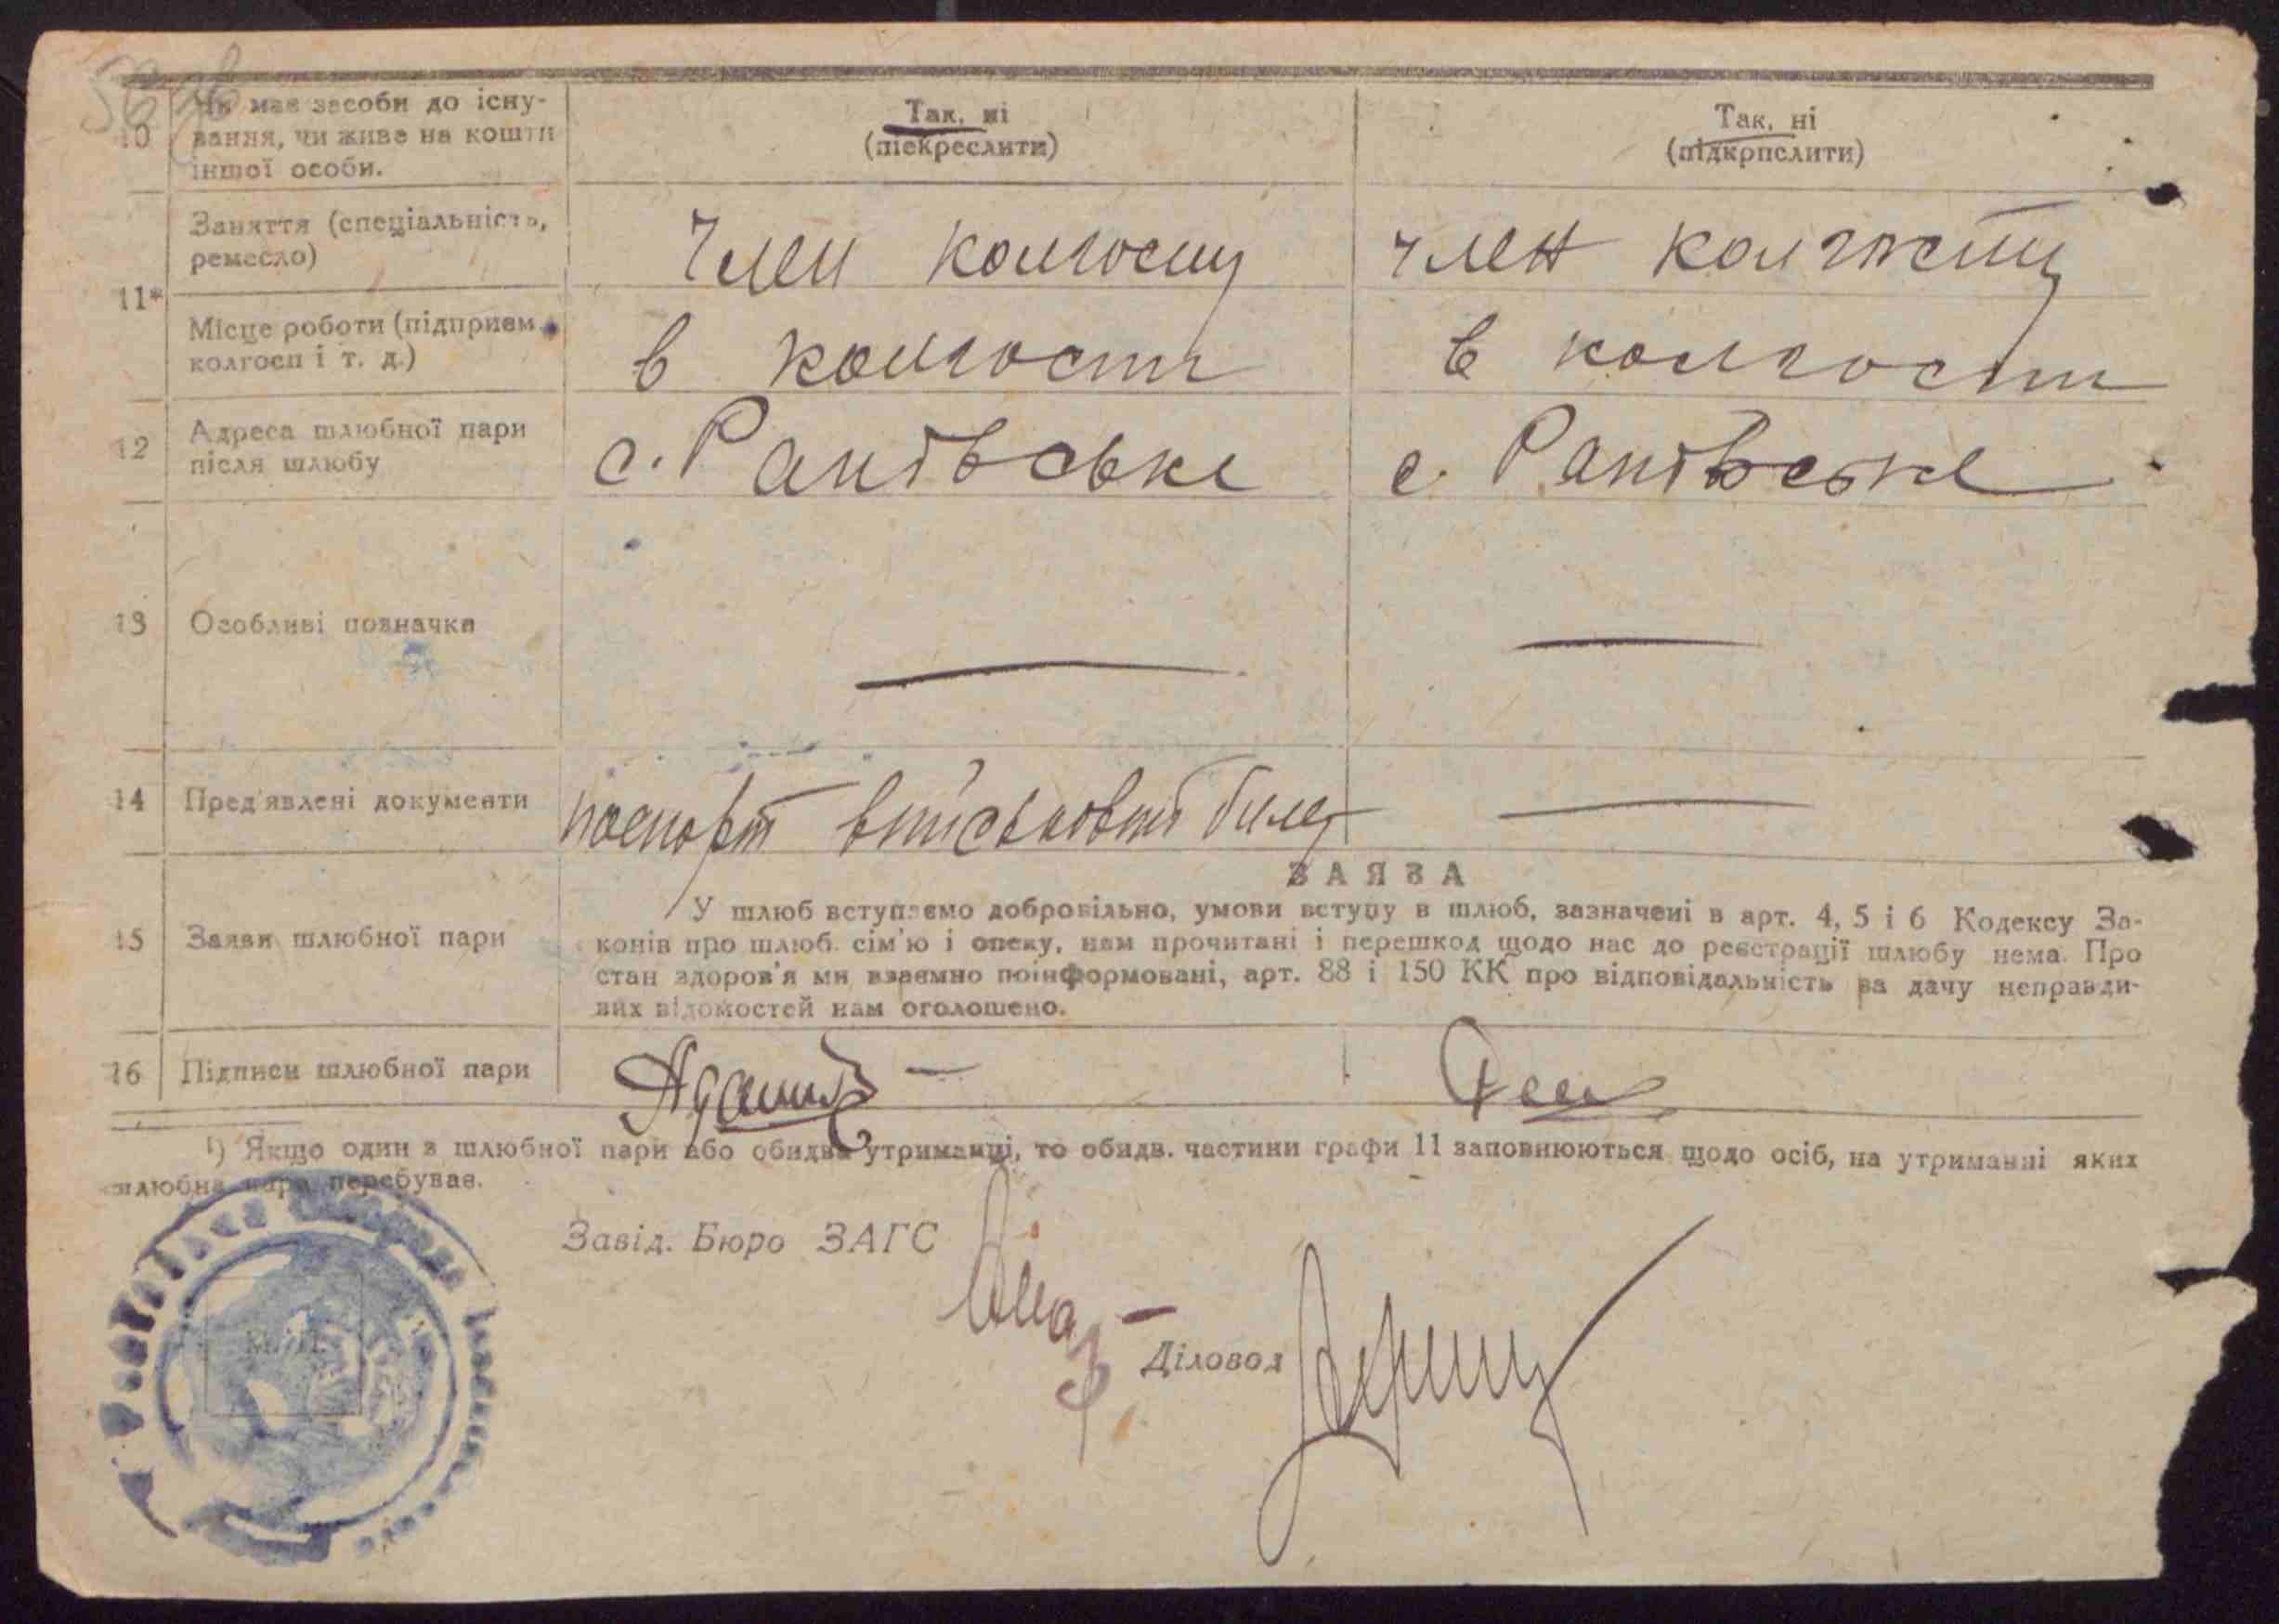 10
Як має засоби до існу-
вання, чи живе на кошти
іншої особи.
Так, ні
(піекреслити)
Так, ні
(підкрпслити)
11*
Заняття (спеціальність,
ремесло)
Член колгоспу
член колгоспу
Місце роботи (підприєм.
колгосп і т. д.)
в колгоспі
в колгоспі
12
Адреса шлюбної пари
після шлюбу
с. Рапівське
с. Рапівське
13
Особливі позначки
14
Пред'явлені документи
паспорт військовий билет
ЗАЯВА
15
Заяви шлюбної пари
У шлюб вступаємо добровільно, умови вступу в шлюб, зазначені в арт. 4, 5 і 6 Кодексу За-
конів про шлюб. сім'ю і опеку, нам прочитані і перешкод щодо нас до реєстрації шлюбу нема. Про
стан здоров'я ми взаємно поінформовані, арт. 88 і 150 КК про відповідальність за дачу неправди-
вих відомостей нам оголошено.
16
Підписи шлюбної пари
¹) Якщо один з шлюбної пари або обидва утриманці, то обидв. частини графи 11 заповнюються щодо осіб, на утриманні яких
шлюбна пара перебуває.
Завід. Бюро ЗАГС
М. П.
Діловод